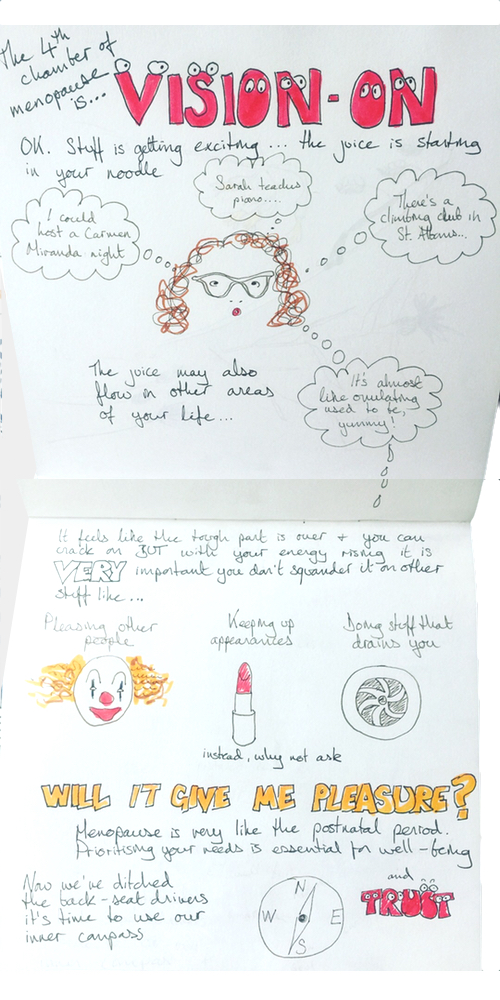 The 4th
chamber of
menopause
is...
VISION-ON
OK. Stuff is getting exciting... the juice is starting
in your noodle
I could
host a Carmen
Miranda night
Sarah teaches
piano....
There's a
climbing club in
St. Albans...
The juice may also
flow in other areas
of your life...
It's almost
like ovulating
used to be,
yummy!
It feels like the tough part is over + you can
crack on BUT with your energy rising it is
VERY important you don't squander it on other
stuff like...
Pleasing other
people
Keeping up
appearances
Doing stuff that
drains you
instead, why not ask
WILL IT GIVE ME PLEASURE?
Menopause is very like the postnatal period.
Prioritising your needs is essential for well-being
and
TRUST
Now we've ditched
the back-seat drivers
it's time to use our
inner compass
N
W E
S